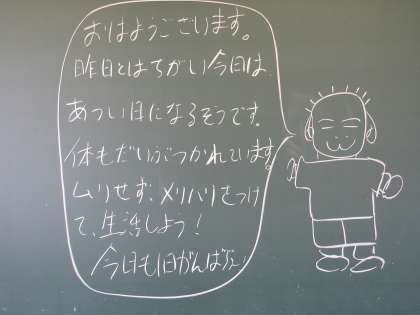 おはようございます。
昨日とはちがい今日は、
あつい日になるそうです。
体もだいぶつかれています。
ムリせず、メリハリをつけ
て、生活しよう!
今日も1日がんばろう